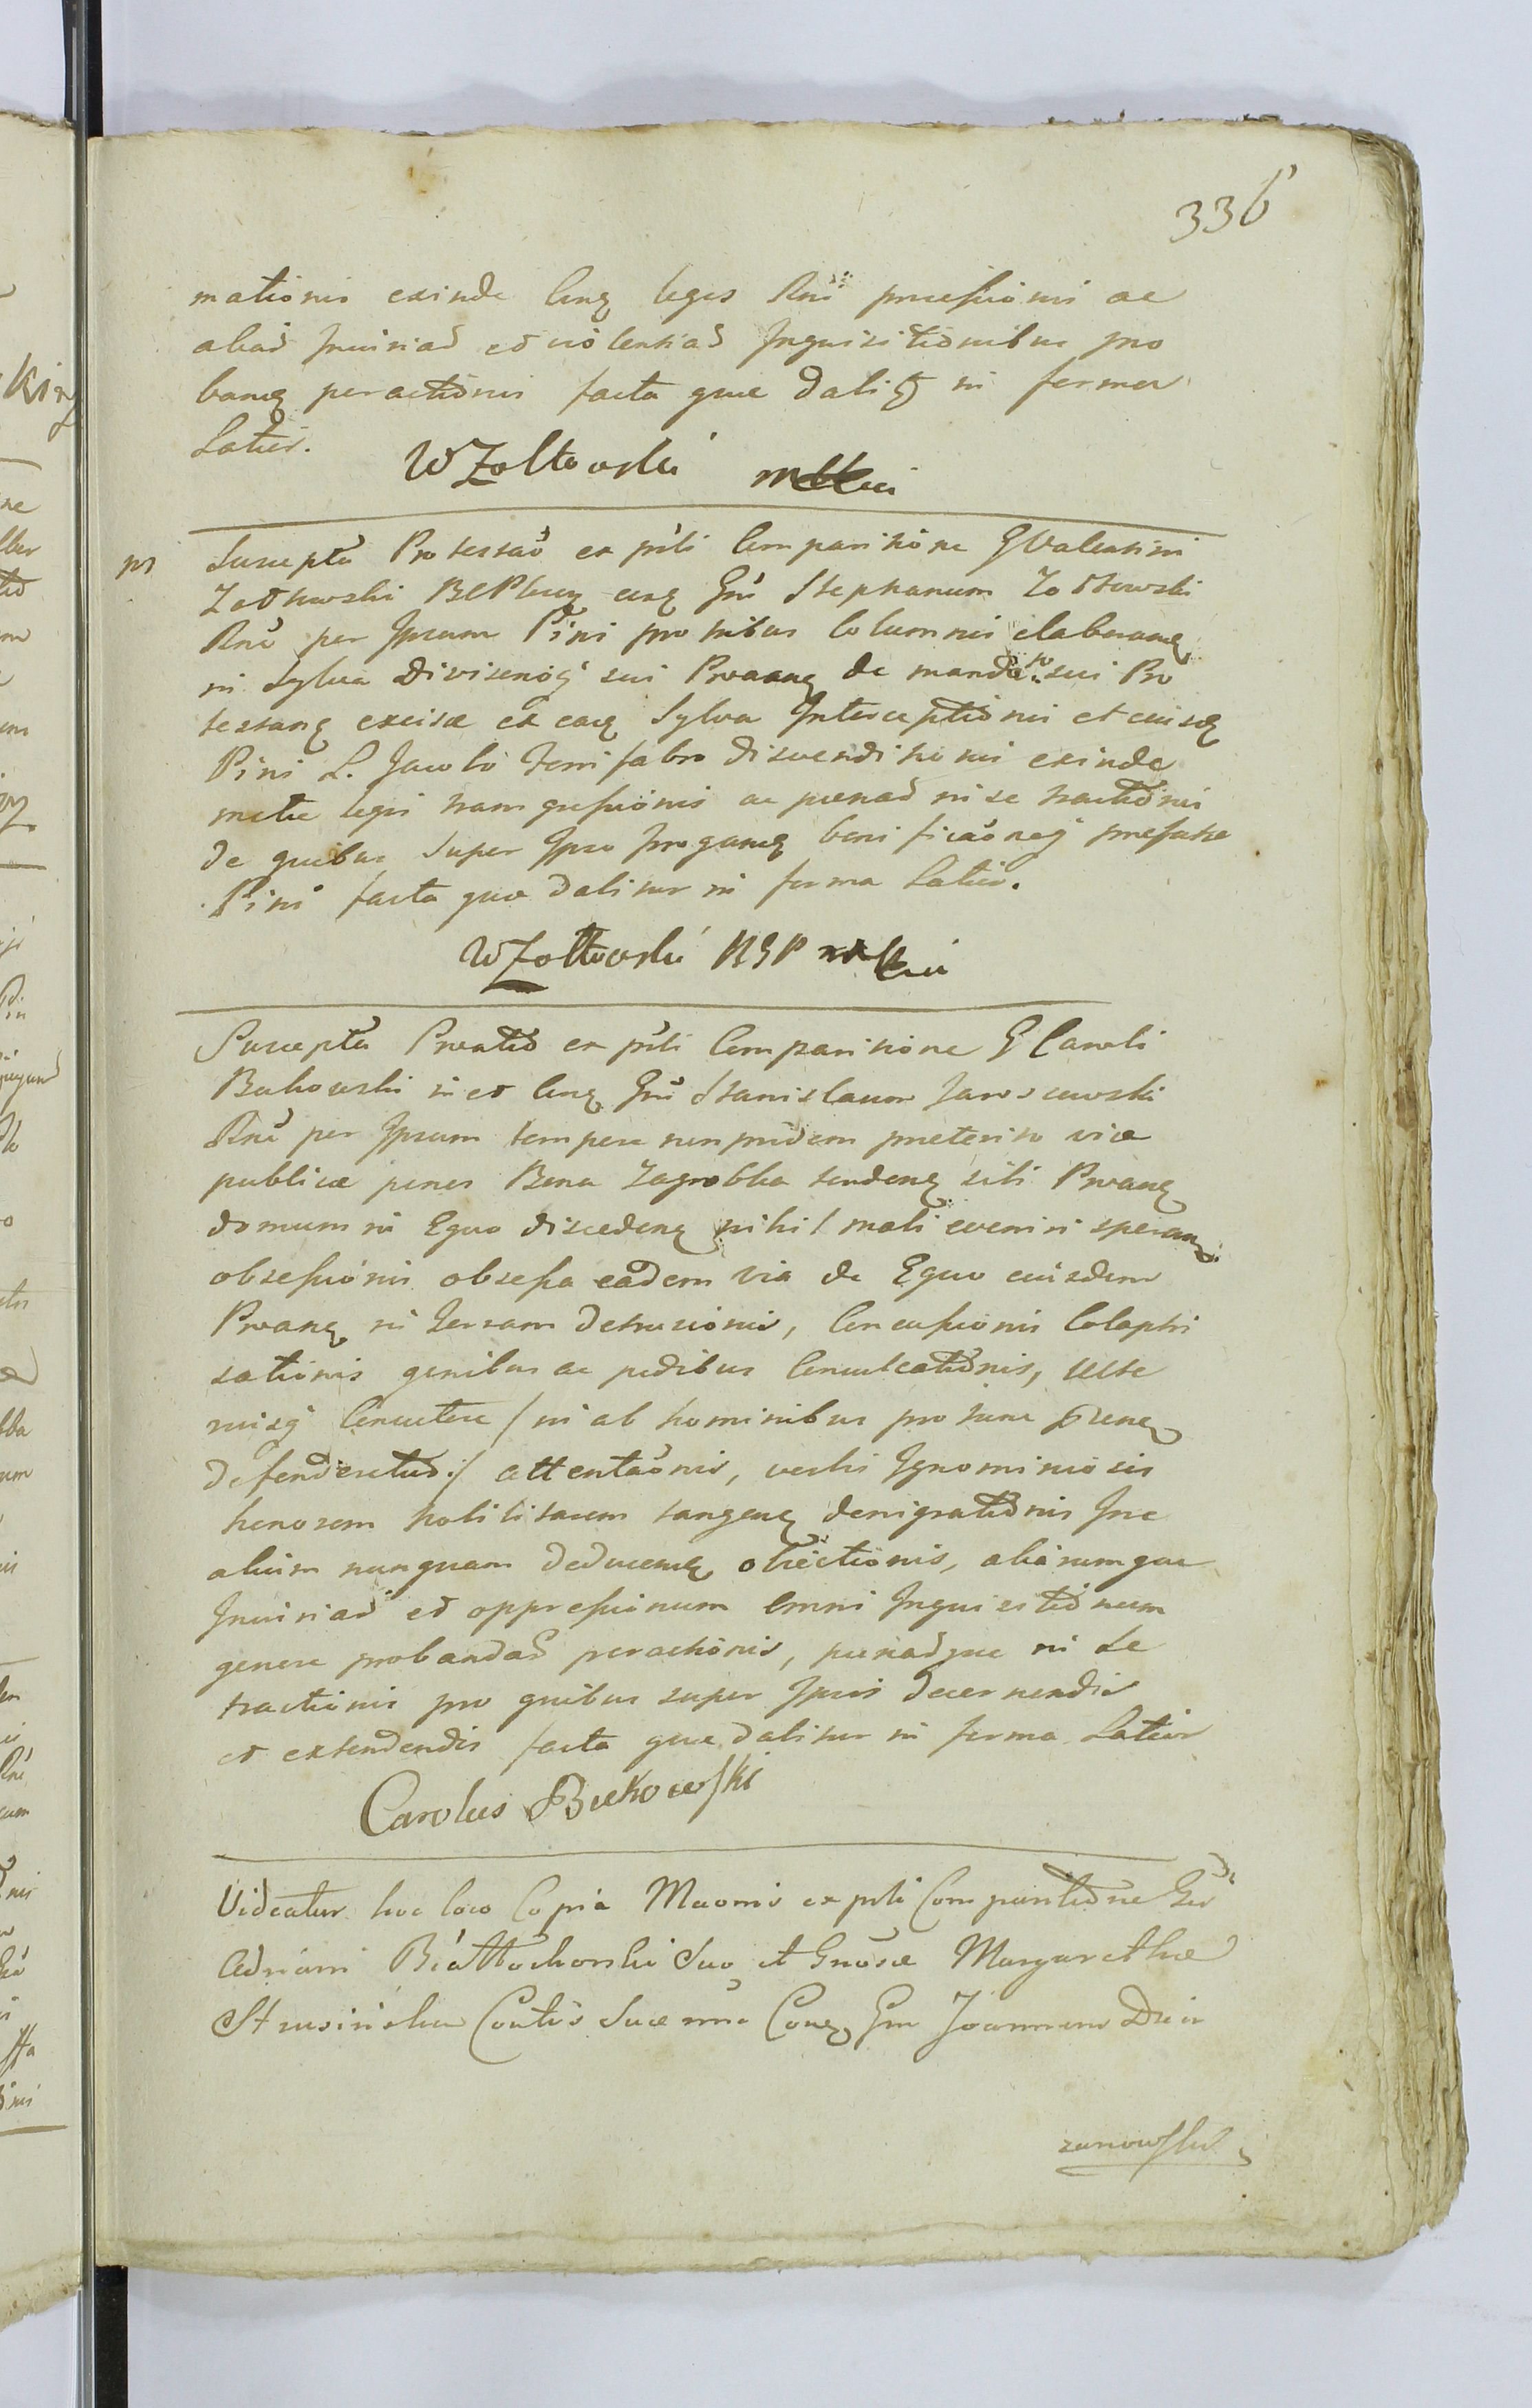 336
mationis exinde Cong leges Rnē prꝛessionis ac
aliad Iniuriad et violentiad Inquisitionibus pro
bang peractionis facta que dalig in forma
Latius.
WZołtowski mp
m Suscepta Protestaō ex psēti Comparitione G Valentini
Zołtowski BCP Cong Gnū Stephanum Zołtowski
Rnē per Ipsum Pini pro tribus Columnis elaborang
in Sylva Divisenog sui Prāng de mandato sui Pro
testang excisæ ex eaq Sylva Interceptionis et eiusq
Pini L. Jacobo ferri fabro disvenditionis exinde
metæ legis transgressionis ac pænad in se tractionis
de quibus super Ipso Irrogang bonificaōneq præfatæ
Pini facta que dalitur in forma Latius.
WZołtowski BGP mp
Suscepta Prātio ex psēti Comparitione G Caroli
Bukowski in et Cong Gnū Stanislaum Jaroszewski
Rnē per Ipsum tempore non pridem præterito viæ
publicæ penes Bona Zagrobka tendeng sibi Prāng
domum in Equo discedeng nihil mali eveniri sperang
obsessionis obsessa eadem via de Equo eiusdem
Prāng in terram detrusionis, Concussionis Colaphi
sationis genibus ac pedibus Conculcationis, Ulte
riusq Concutere /: ni ab hominibus pro tunc
defenderetur :/ attentaōnis, verbis Ignominiosis
honorem nobilitarem tangeng denigrationis Inc
alium nunquam deduceng obiectionis, aliarumque
Iniuriad et oppressionum omni Inquisitionum
genere probandad peractionis, pænadque in se
tractionis pro quibus super Ipsis decernendis
et extendendis facta que dalitur in forma Latius
Carolus Bukowski
Videatur hoc loco Copia Maōnis ex psti Comparitione Gsi
Adriani Białłochorski Suo et Gnosæ Margarethæ
Strusińska Contis Suæ nne Cong Gm Joannem Dzie
zanowski